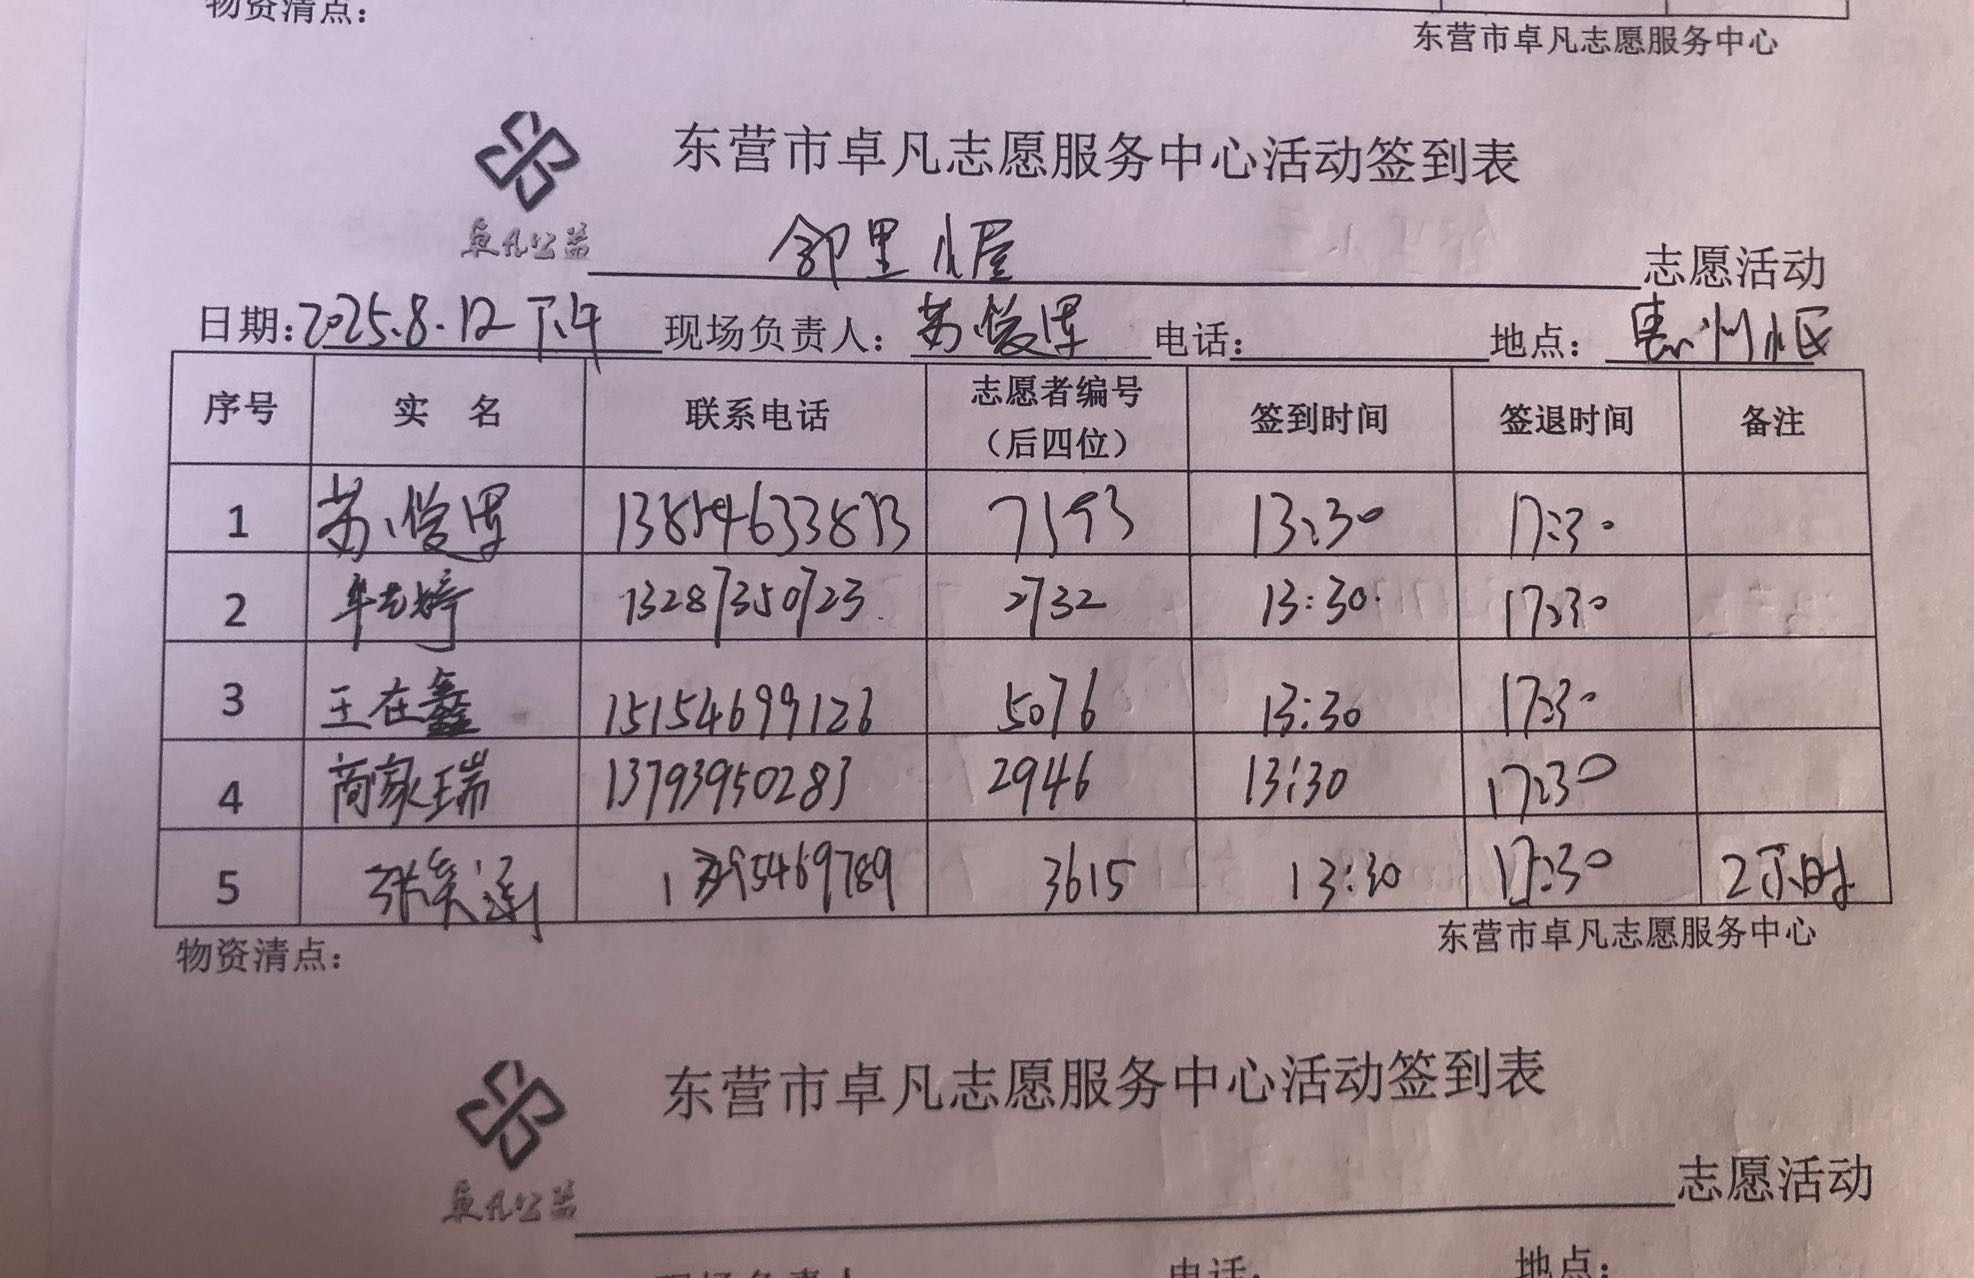 物资清点：
东营市卓凡志愿服务中心
东营市卓凡志愿服务中心活动签到表
卓凡公益
邻里小屋 志愿活动
日期：2025.8.12 下午 现场负责人： 电话： 地点：惠州小区
序号 实 名 联系电话 志愿者编号（后四位） 签到时间 签退时间 备注
1 7193 13:30 17:30
2 13287350723 2732 13:30 17:30
3 王在鑫 15154699126 5076 13:30 17:30
4 商家瑞 13793950283 2946 13:30 17:30
5 3615 13:30 17:30 2小时
物资清点：
东营市卓凡志愿服务中心
东营市卓凡志愿服务中心活动签到表
卓凡公益
志愿活动
现场负责人 电话： 地点：